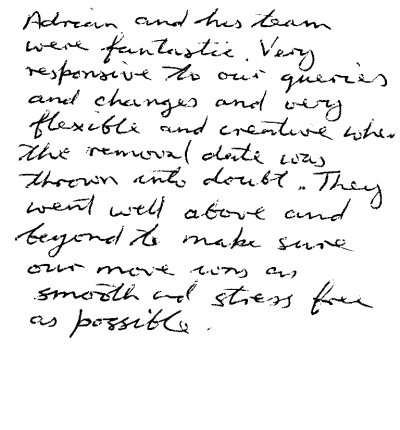 Adrian and his team
were fantastic. Very
responsive to our queries
and changes and very
flexible and creative when
the removal date was
thrown into doubt. They
went well above and
beyond to make sure
our move was as
smooth and stress free
as possible.